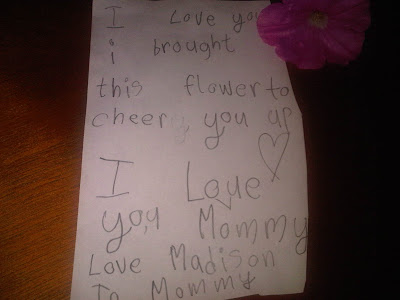 I Love you
i brought
this flower to
cheer you up
I Love
you Mommy
Love Madison
To Mommy